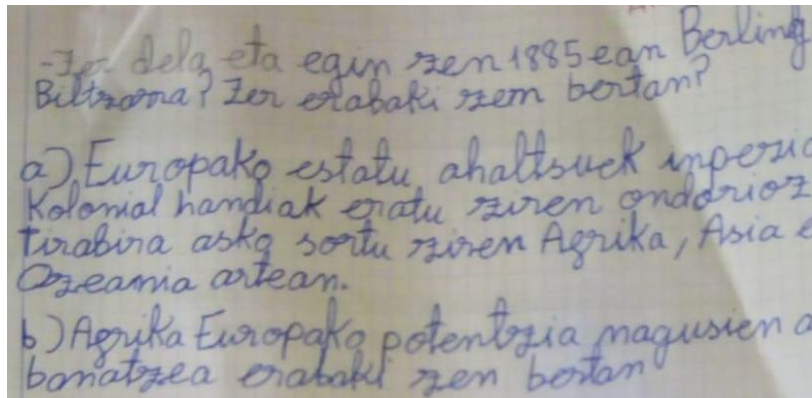 -Zer dela eta egin zen 1885ean Berling
Biltzarra? Zer erabaki zem bertan?
a) Europako estatu ahaltsuek inperio
Kolonial handiak eratu ziren ondorioz
Tirabira asko sortu ziren Agrika, Asia e
Ozeania artean.
b) Agrika Europako potentzia nagusien a
banatzea erabaki zen bertan